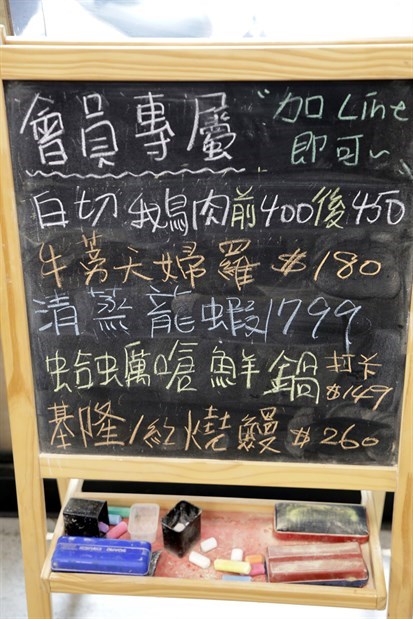 會員專屬
"加Line
即可~
白切鵝肉前400後450
牛蒡天婦羅 $180
清蒸龍蝦1799
蛤蠣嗆鮮鍋 打卡
$149
基隆/紅燒鰻 $260